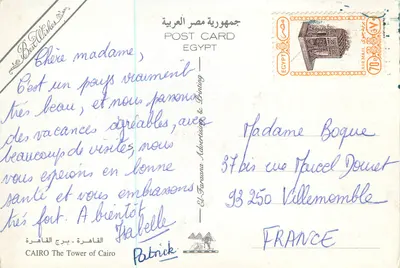 Best Wishes from
Chère madame,
C'est un pays vraiment
très beau, et nous passons
des vacances agréables, avec
beaucoup de visites, nous
vous espérons en bonne
santé et vous embrassons
très fort. A bientôt
Isabelle
Patrick
القاهرة - برج القاهرة
CAIRO The Tower of Cairo
جمهورية مصر العربية
POST CARD
EGYPT
El-Faraana Advertising & Printing
EGYPT
مصر
Madame Boque
37 bis rue Marcel Douret
93250 Villemomble
FRANCE